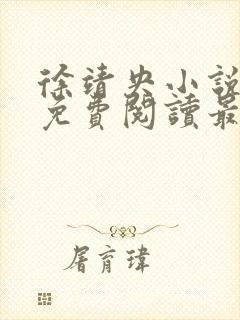 徐靖央小說
免費閱讀最
屠育瑋